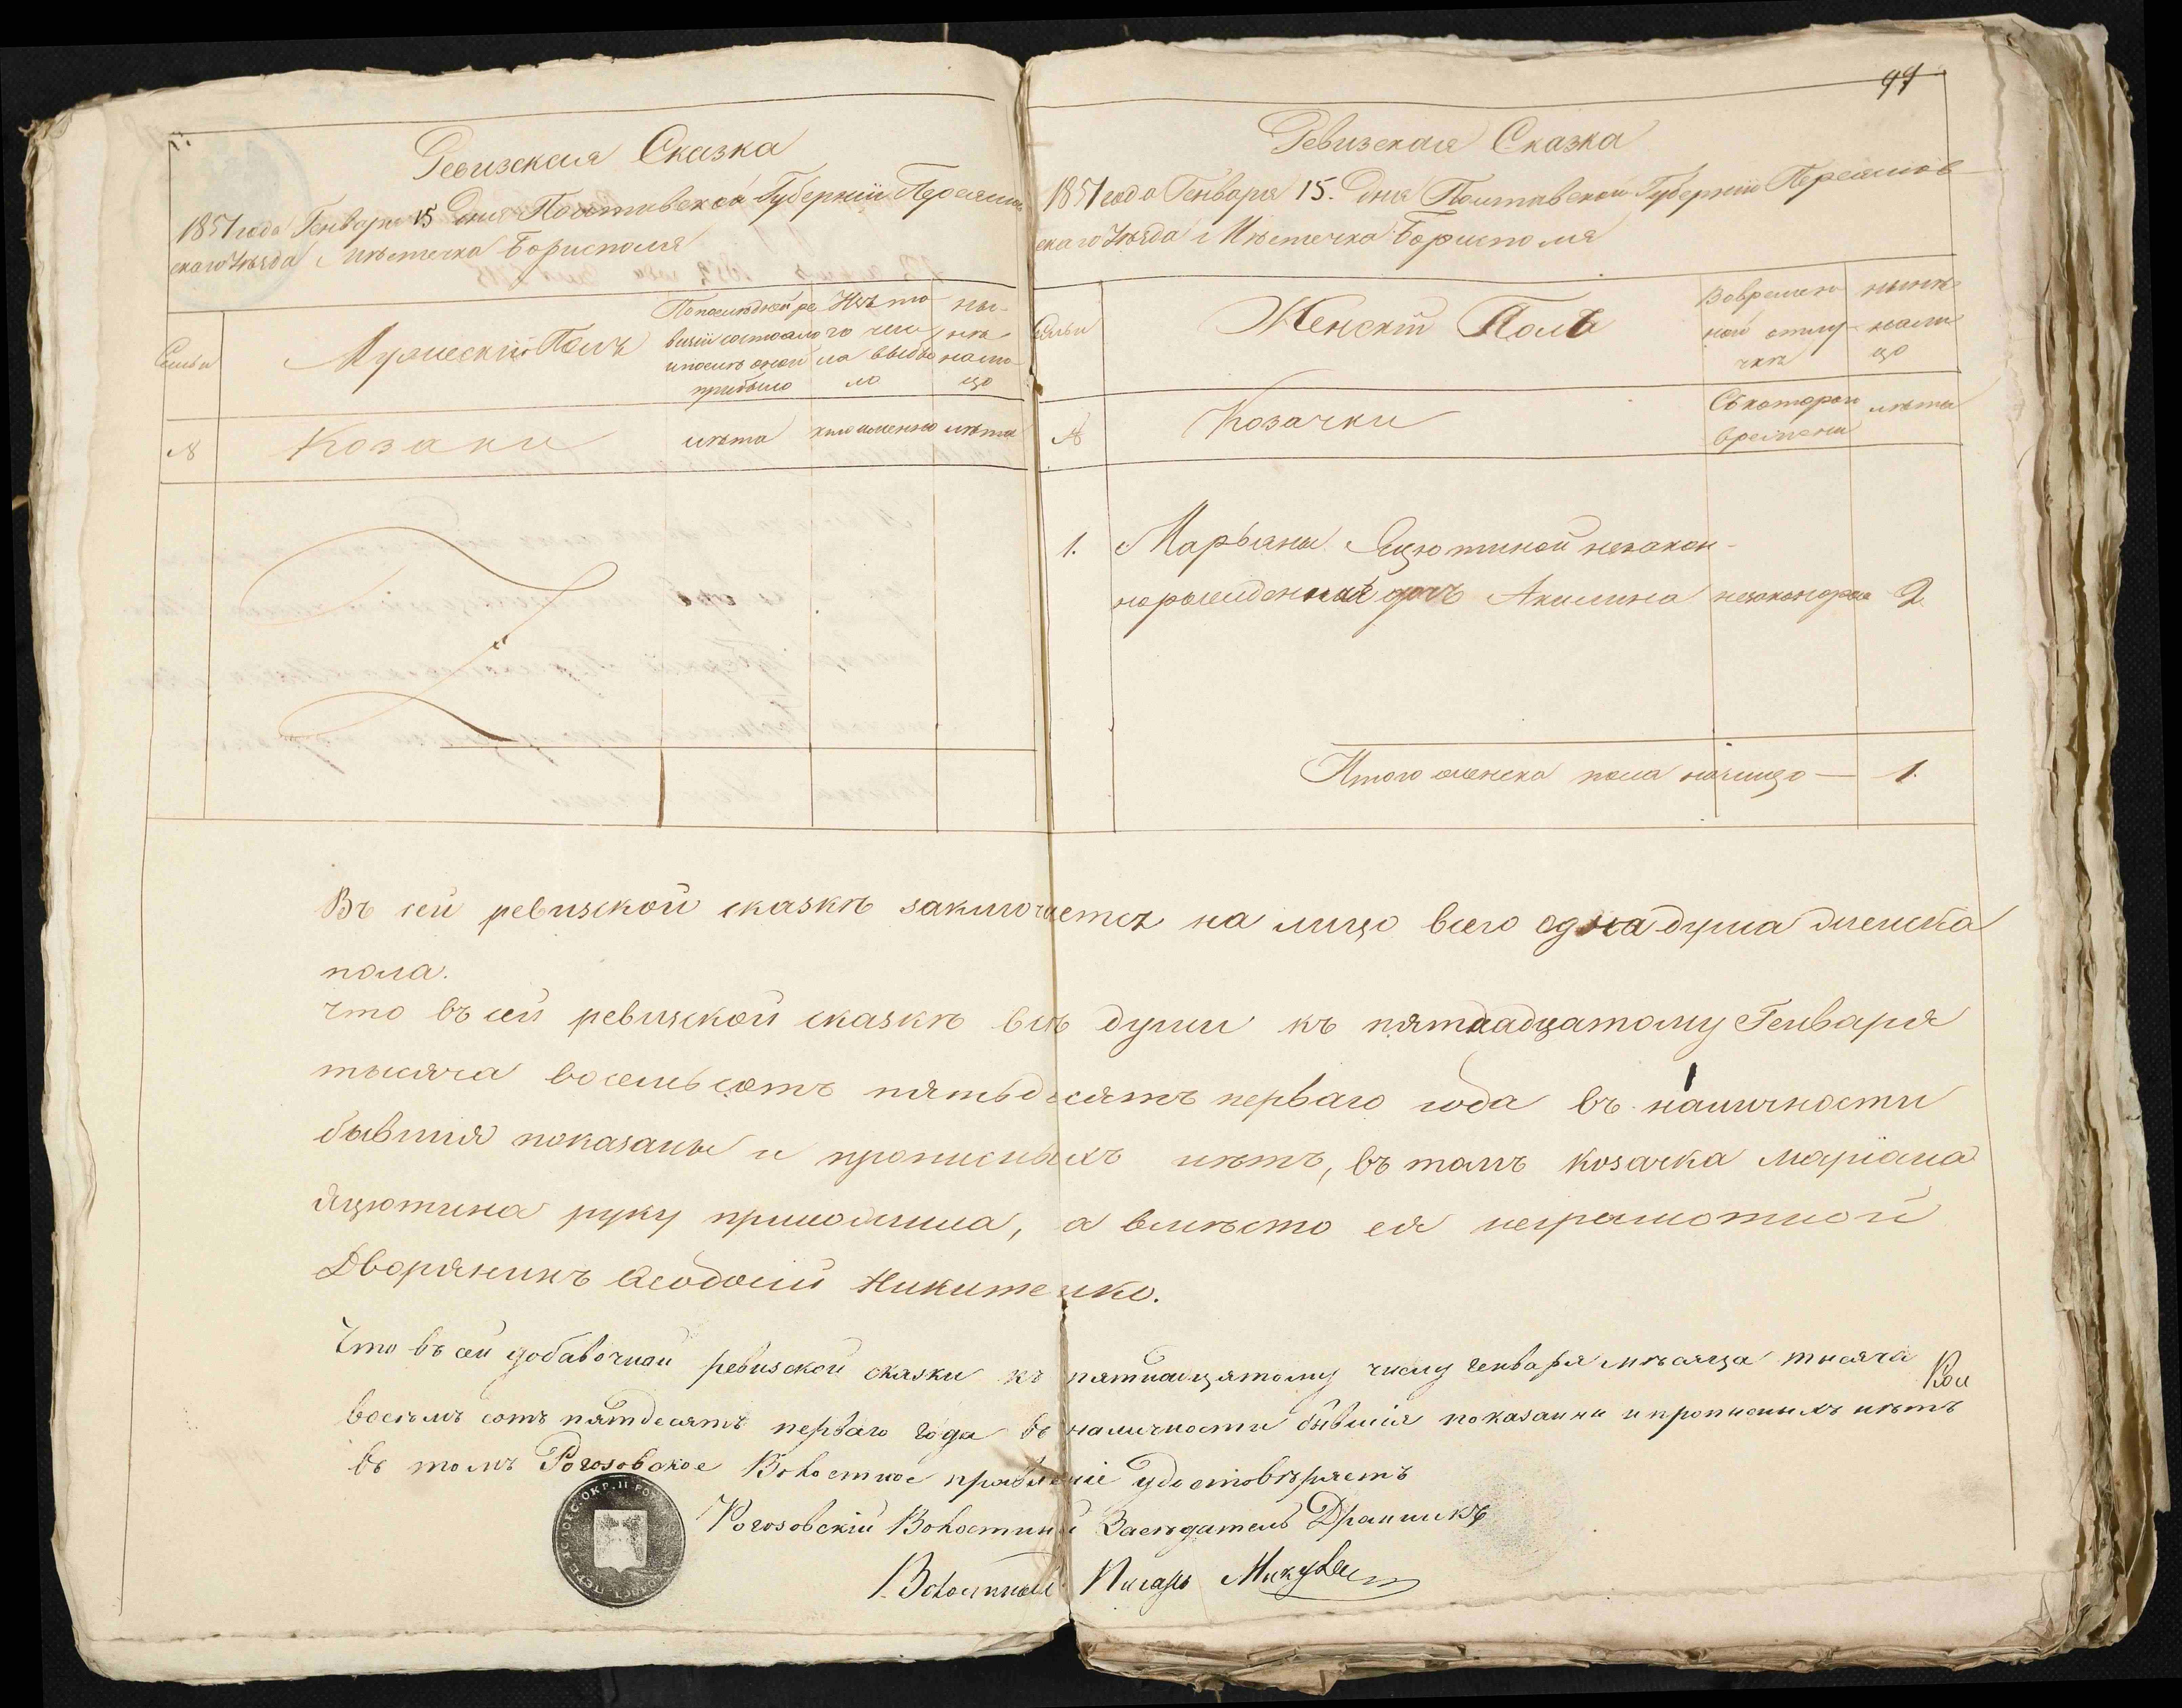 Ревизская Сказка
1851 года Генваря 15 Дня Полтавской Губернiи Переяслов
скаго Уѣзда Мѣстечка Борисполя
Семьи
Мужескiй Полъ
По последней ре
визiи состояло
и после оной
прибыло
Изъ то
го чис
ла выбы
ло
ны-
нѣ
на ли-
цо
№
Козаки
лѣта
когда именно
лѣта
99
Ревизская Сказка
1851 года Генваря 15. Дня Полтавской Губернiи Переяслов-
скаго Уѣзда Мѣстечка Борисполя
Семьи
Женскiй Полъ
Во времен
ной отлу-
чкѣ
нынѣ
на ли
цо
№
Козачки
Съ которого
времени
лѣта
1. Марьяны Яцютиной незакон-
норожденная дочь Акилина незаконорож 2
Итого женска пола налицо — 1.
Въ сей ревизской сказкѣ заключается на лицо всего одна душа женска
пола.
что въ сей ревизской сказкѣ всѣ души къ пятнадцатому Генваря
тысяча восемьсотъ пятьдесятъ перваго года въ наличности
бывшiя показаны и прописныхъ нѣтъ, въ томъ козачка Марiана
Яцютина руку приложила, а вмѣсто ея неграмотной
Дворянинъ Ѳеодосiй Никитенко.
Что въ сей добавочной ревизской сказки къ пятнадцятому числу генваря мѣсяца тысяча
восемъ сотъ пятдесятъ перваго года въ наличности бывшiя показанни и прописныхъ нѣтъ
въ томъ Рогозовское Волостное правленiе удостовѣряетъ
Рогозовскiй Волостний Засѣдатель Драпикъ
Волостной Писарь